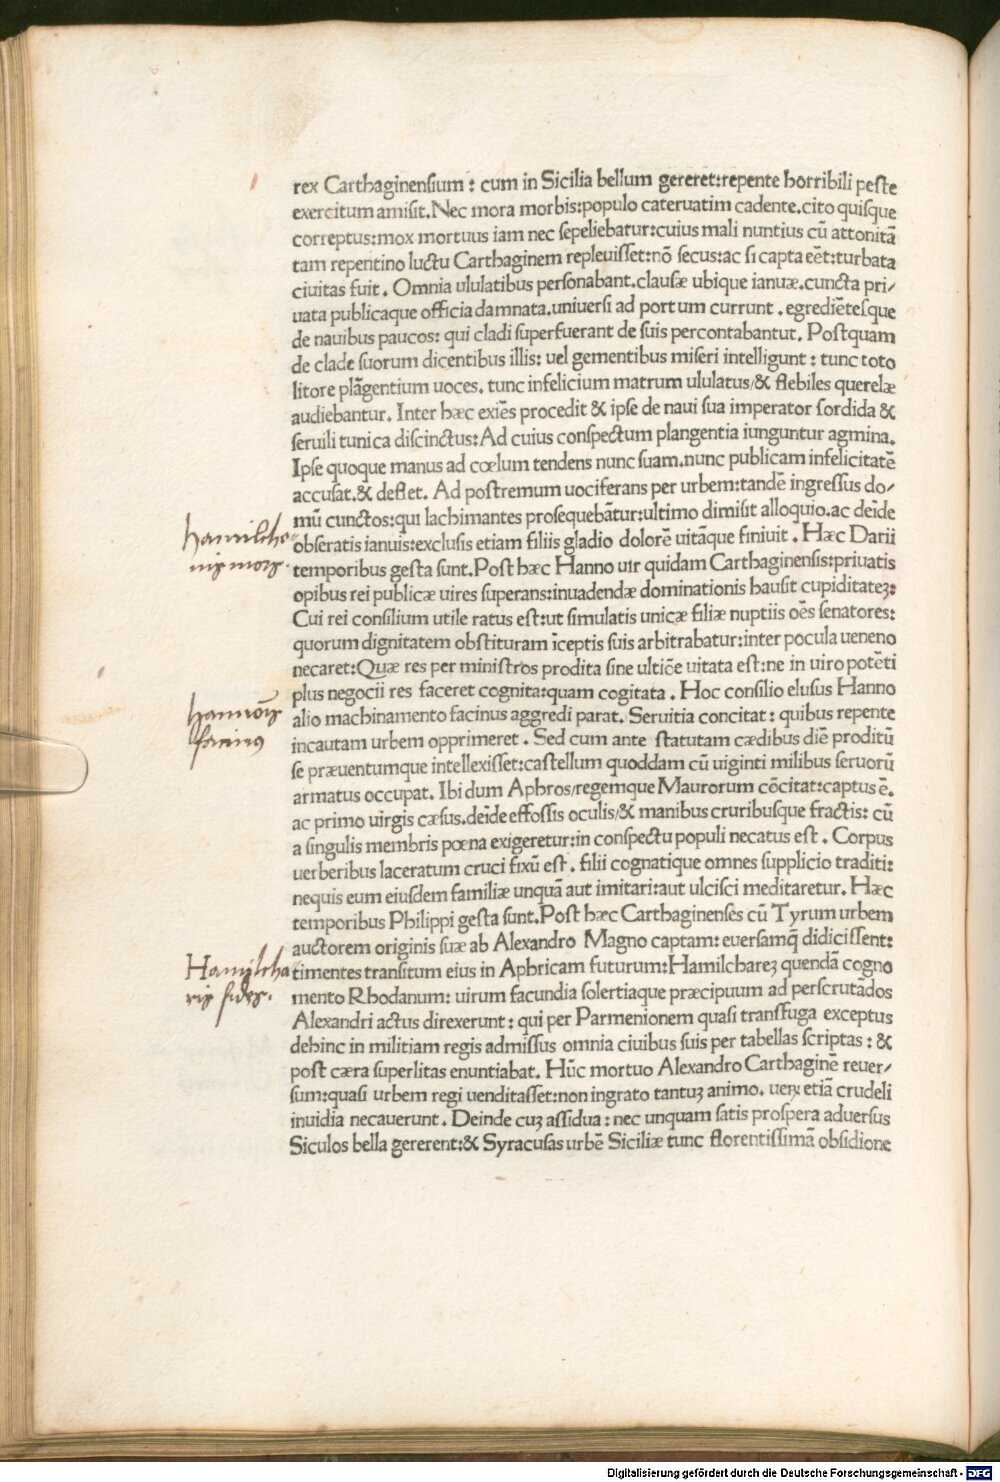 rex Carthaginensium : cum in Sicilia bellum gereret:repente horribili peste
exercitum amisit.Nec mora morbis:populo cateruatim cadente.cito quisque
correptus:mox mortuus iam nec sepeliebatur:cuius mali nuntius cū attonitā
tam repentino luctu Carthaginem repleuisset:nō secus:ac si capta eēt:turbata
ciuitas fuit. Omnia ululatibus personabant.clausæ ubique ianuæ.cuncta pri/
uata publicaque officia damnata.uniuersi ad portum currunt . egrediētesque
de nauibus paucos: qui cladi superfuerant de suis percontabantut. Postquam
de clade suorum dicentibus illis: uel gementibus miseri intelligunt : tunc toto
litore plāgentium uoces. tunc infelicium matrum ululatus/& flebiles querelæ
audiebantur. Inter hæc exiēs procedit & ipse de naui sua imperator sordida &
seruili tunica discinctus:Ad cuius conspectum plangentia iunguntur agmina.
Ipse quoque manus ad cœlum tendens nunc suam.nunc publicam infelicitatē
accusat.& deflet. Ad postremum uociferans per urbem:tandē ingressus do/
mū cunctos:qui lachimantes prosequebātur:ultimo dimisit alloquio.ac deīde
obseratis ianuis:exclusis etiam filiis gladio dolorē uitāque finiuit . Hæc Darii
temporibus gesta sunt.Post hæc Hanno uir quidam Carthaginensis:priuatis
opibus rei publicæ uires superans:inuadendæ dominationis hausit cupiditateꝫ:
Cui rei consilium utile ratus est:ut simulatis unicæ filiæ nuptiis oēs senatores:
quorum dignitatem obstituram īceptis suis arbitrabatur:inter pocula ueneno
necaret:Quæ res per ministros prodita sine ulticē uitata est:ne in uiro potēti
plus negocii res faceret cognita:quam cogitata . Hoc consilio elusus Hanno
alio machinamento facinus aggredi parat. Seruitia concitat : quibus repente
incautam urbem opprimeret . Sed cum ante statutam cædibus diē proditū
se præuentumque intellexisset:castellum quoddam cū uiginti milibus seruorū
armatus occupat. Ibi dum Aphros/regemque Maurorum cōcitat:captus ē.
ac primo uirgis cæsus.deīde effossis oculis/& manibus cruribusque fractis: cū
a singulis membris pœna exigeretur:in conspectu populi necatus est . Corpus
uerberibus laceratum cruci fixū est. filii cognatique omnes supplicio traditi:
nequis eum eiusdem familiæ unquā aut imitari:aut ulcisci meditaretur. Hæc
temporibus Philippi gesta sunt.Post hæc Carthaginenses cū Tyrum urbem
auctorem originis suæ ab Alexandro Magno captam: euersamq̄ didicissent:
timentes transitum eius in Aphricam futurum:Hamilchareꝫ quendā cogno
mento Rhodanum: uirum facundia solertiaque præcipuum ad perscrutādos
Alexandri actus direxerunt : qui per Parmenionem quasi transfuga exceptus
dehinc in militiam regis admissus omnia ciuibus suis per tabellas scriptas : &
post cæra superlitas enuntiabat. Hūc mortuo Alexandro Carthaginē reuer/
sum:quasi urbem regi uenditasset:non ingrato tantuꝫ animo. ueꝝ etiā crudeli
inuidia necauerunt . Deinde cuꝫ assidua : nec unquam satis prospera aduersus
Siculos bella gererent:& Syracusas urbē Siciliæ tunc florentissimā obsidione
Hamilcho=
nis mors.
hannonis
facinus
Hamilcha
ris fides.
Digitalisierung gefördert durch die Deutsche Forschungsgemeinschaft - DFG